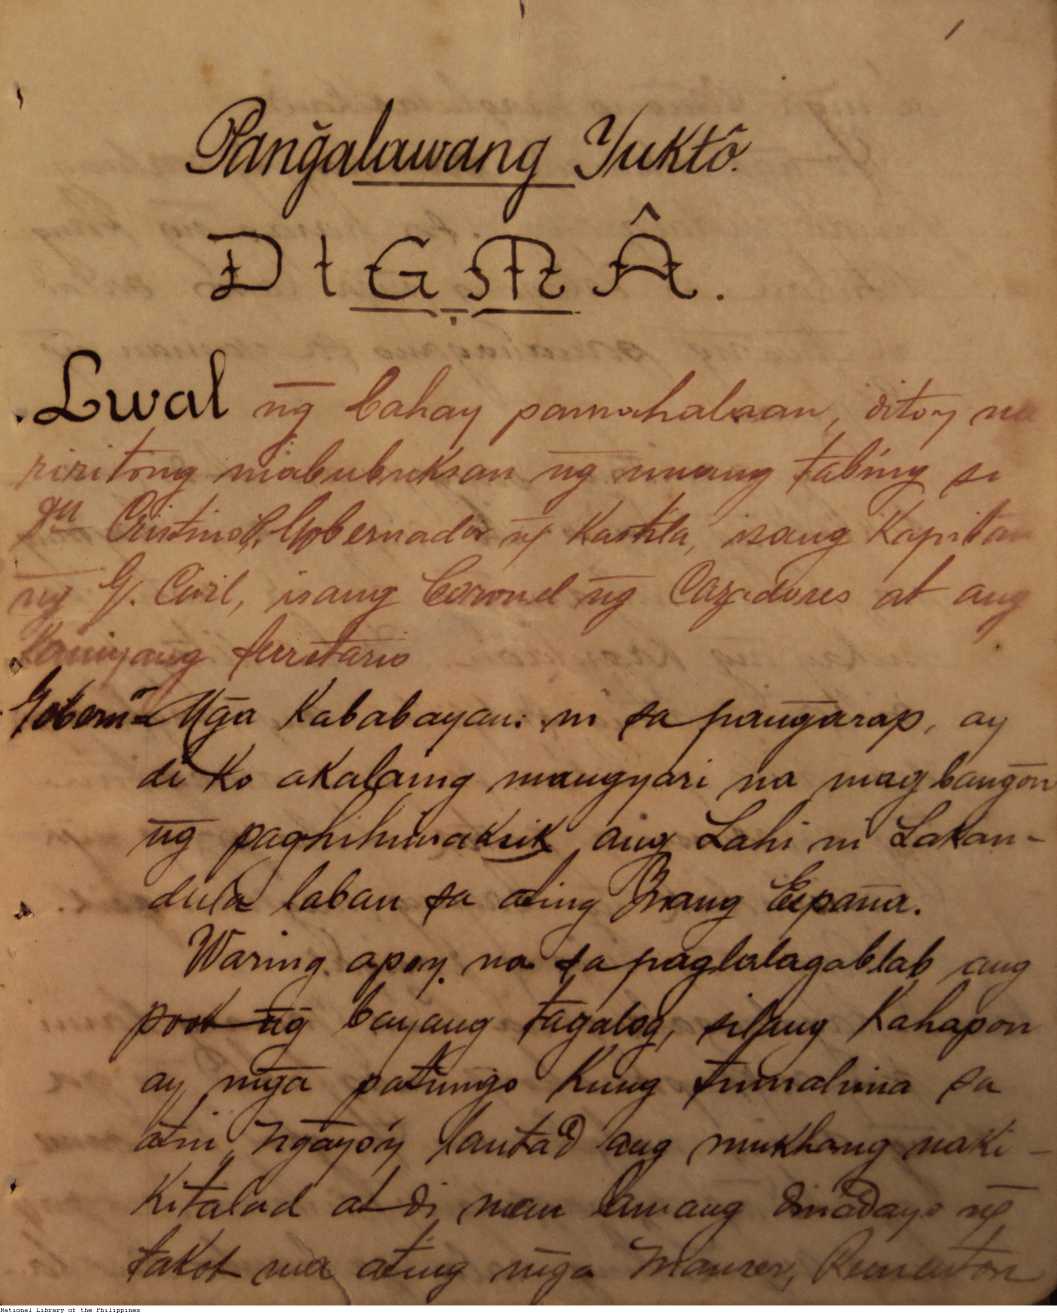 1
Pang̃alawang Yuktô.
DIGMÂ.
Lwal n͠g bahay pamahalaan, ditoy na
riritong niabubuksan n͠g muang tabing si
gu Gobernador n͠g Kastila, isang Kapitan
n͠g G. Civil, isang Coronel n͠g Cazadores at ang
kaniyang secretario
Gobernor= Mg̃a Kababayan: ni sa pang̃arap, ay
di ko akalaing mangyari na magbang̃on
n͠g paghihimaksik ang Lahi ni Lakan-
dula laban sa ating Ynang España.
Waring apoy na sa paglalagablab ang
pook n͠g bayang tagalog, silang Kahapon
ay mg̃a patung̃o Kung tumalima sa
atin, ng̃ayo'y lantad ang mukhang naki-
kitalad at di man lamang dinadayo n͠g
takot sa ating mg̃a Mauser, Rementon
National Library of the Philippines